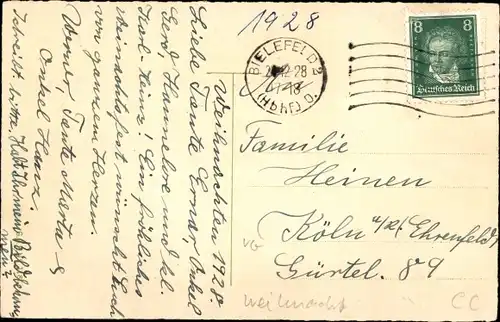 1928
BIELEFELD 2
12.28
(Hbhf) D.
8 8
Deutsches Reich
Weihnachten 1928.
Liebe Tante Erna, Onkel
Gerd, Hannelore und kl.
Karl-Heinz! Ein fröhliches
Weihnachtsfest wünscht Euch
von ganzem Herzen
Oma, Tante Marta &
Onkel Hans.
Schreibt bitte, Habt Ihr meine
Familie
Heinen
Köln a/Rh. Ehrenfeld
Gürtel. 89
Weihnacht
CC